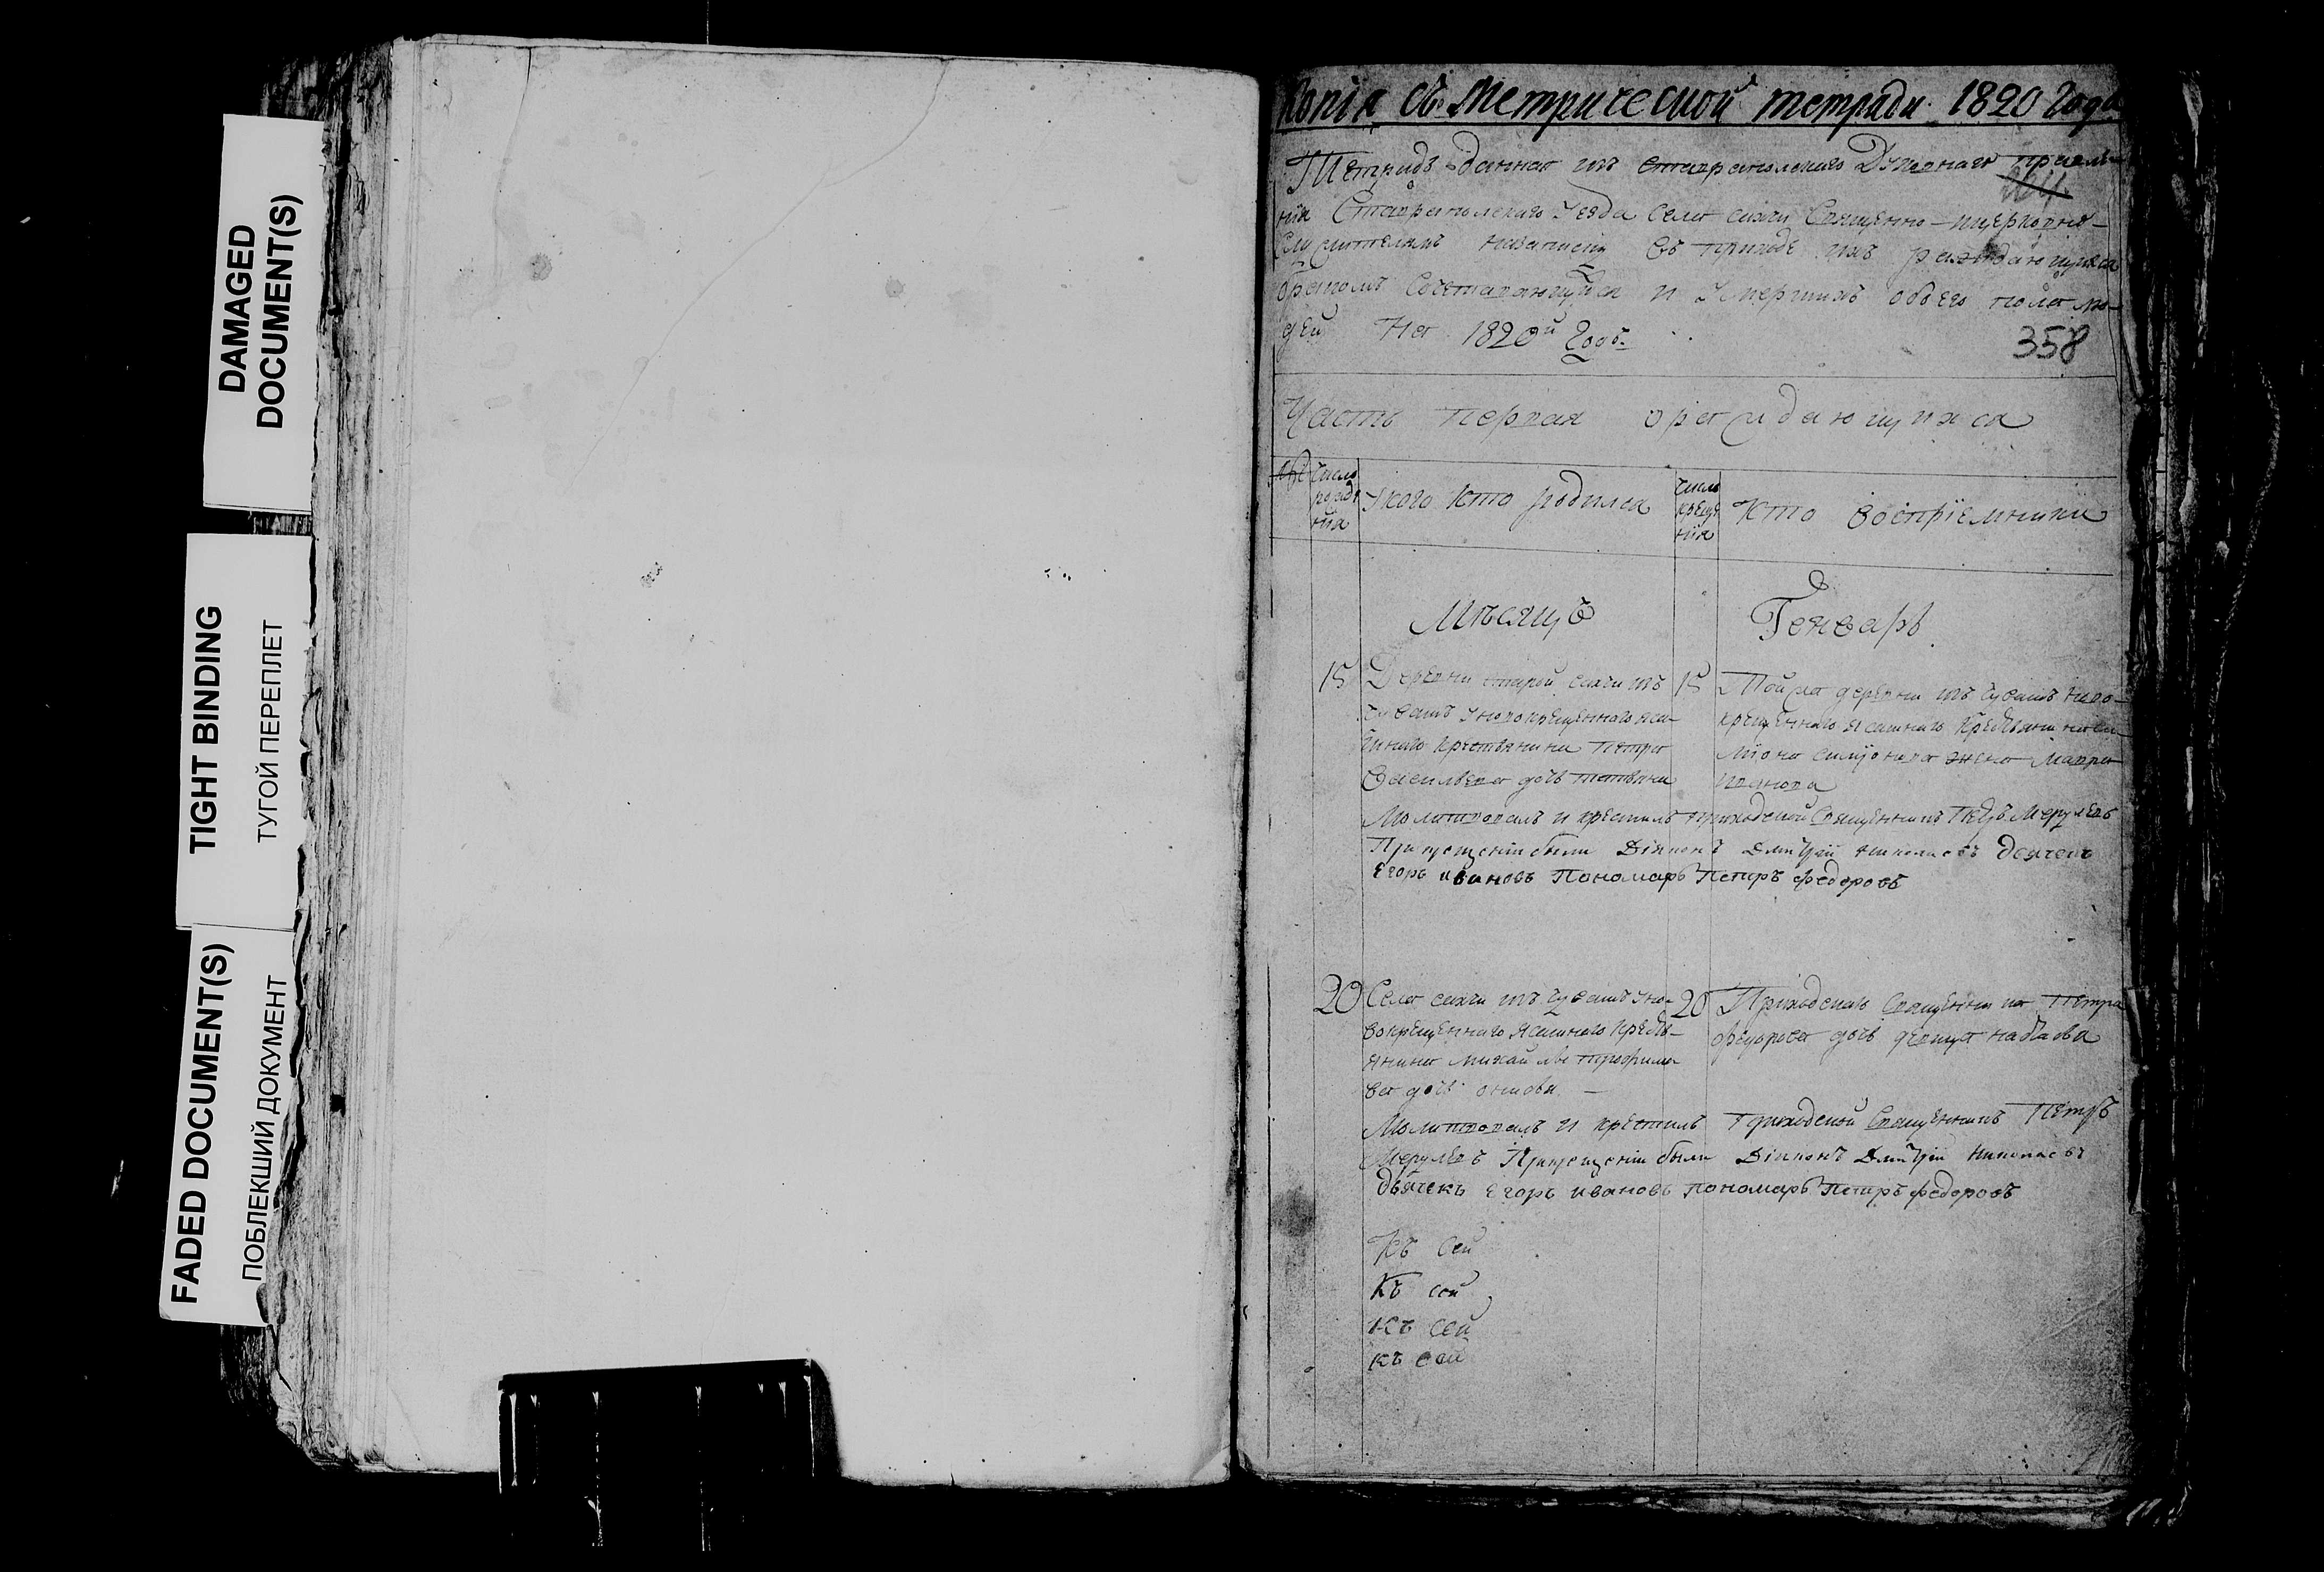 DAMAGED
DOCUMENT(S)
TIGHT BINDING
ТУГОЙ ПЕРЕПЛЕТ
FADED DOCUMENT(S)
ПОБЛЕКШИЙ ДОКУМЕНТ
Копія съ Метрической тетради 1820 Года
Тетрадь данная изъ Ставропольскаго Духовнаго правле-
нія Ставропольскаго Уезда села Священно-церковно-
служителямъ въ приходе ихъ раждающихся
бракомъ Сочетавающихся и Умершихъ обоего пола лю-
дей На 1820й Годъ
358
Часть первая ораждающихся
число рожде нія
Укого кто родился
число креще нія
Кто воспріемники
Мѣсяцъ
Генварь
15
Деревни старой изъ
чувашъ Уновокрещеннаго яса-
чнаго крестьянина Петра
Васильева дочь татьяна
15
Тойжа деревни изъ чувашъ ново-
крещеннаго ясашнаго крестьянина си-
міона симіонова жена Мавра
Иванова
Молитвовалъ и крестилъ приходской Священникъ Петръ
При крещеніи были Діяконъ Дмитрій Николаевъ дьячекъ
Егоръ ивановъ Пономарь Петръ федоровъ
20
Села изъ чувашъ Уно-
вокрещеннаго Ясашнаго крестъ-
янина михайлы трофимо-
ва дочь
20
Приходскаго Священника Петра
федорова дочь девица
Молитвовалъ и крестилъ приходской Священникъ Петръ
При крещеніи были Діяконъ Дмитрій Николаевъ
дьячекъ Егоръ ивановъ пономарь Петръ федоровъ
Къ сей
Къ сей
Къ сей
къ сей